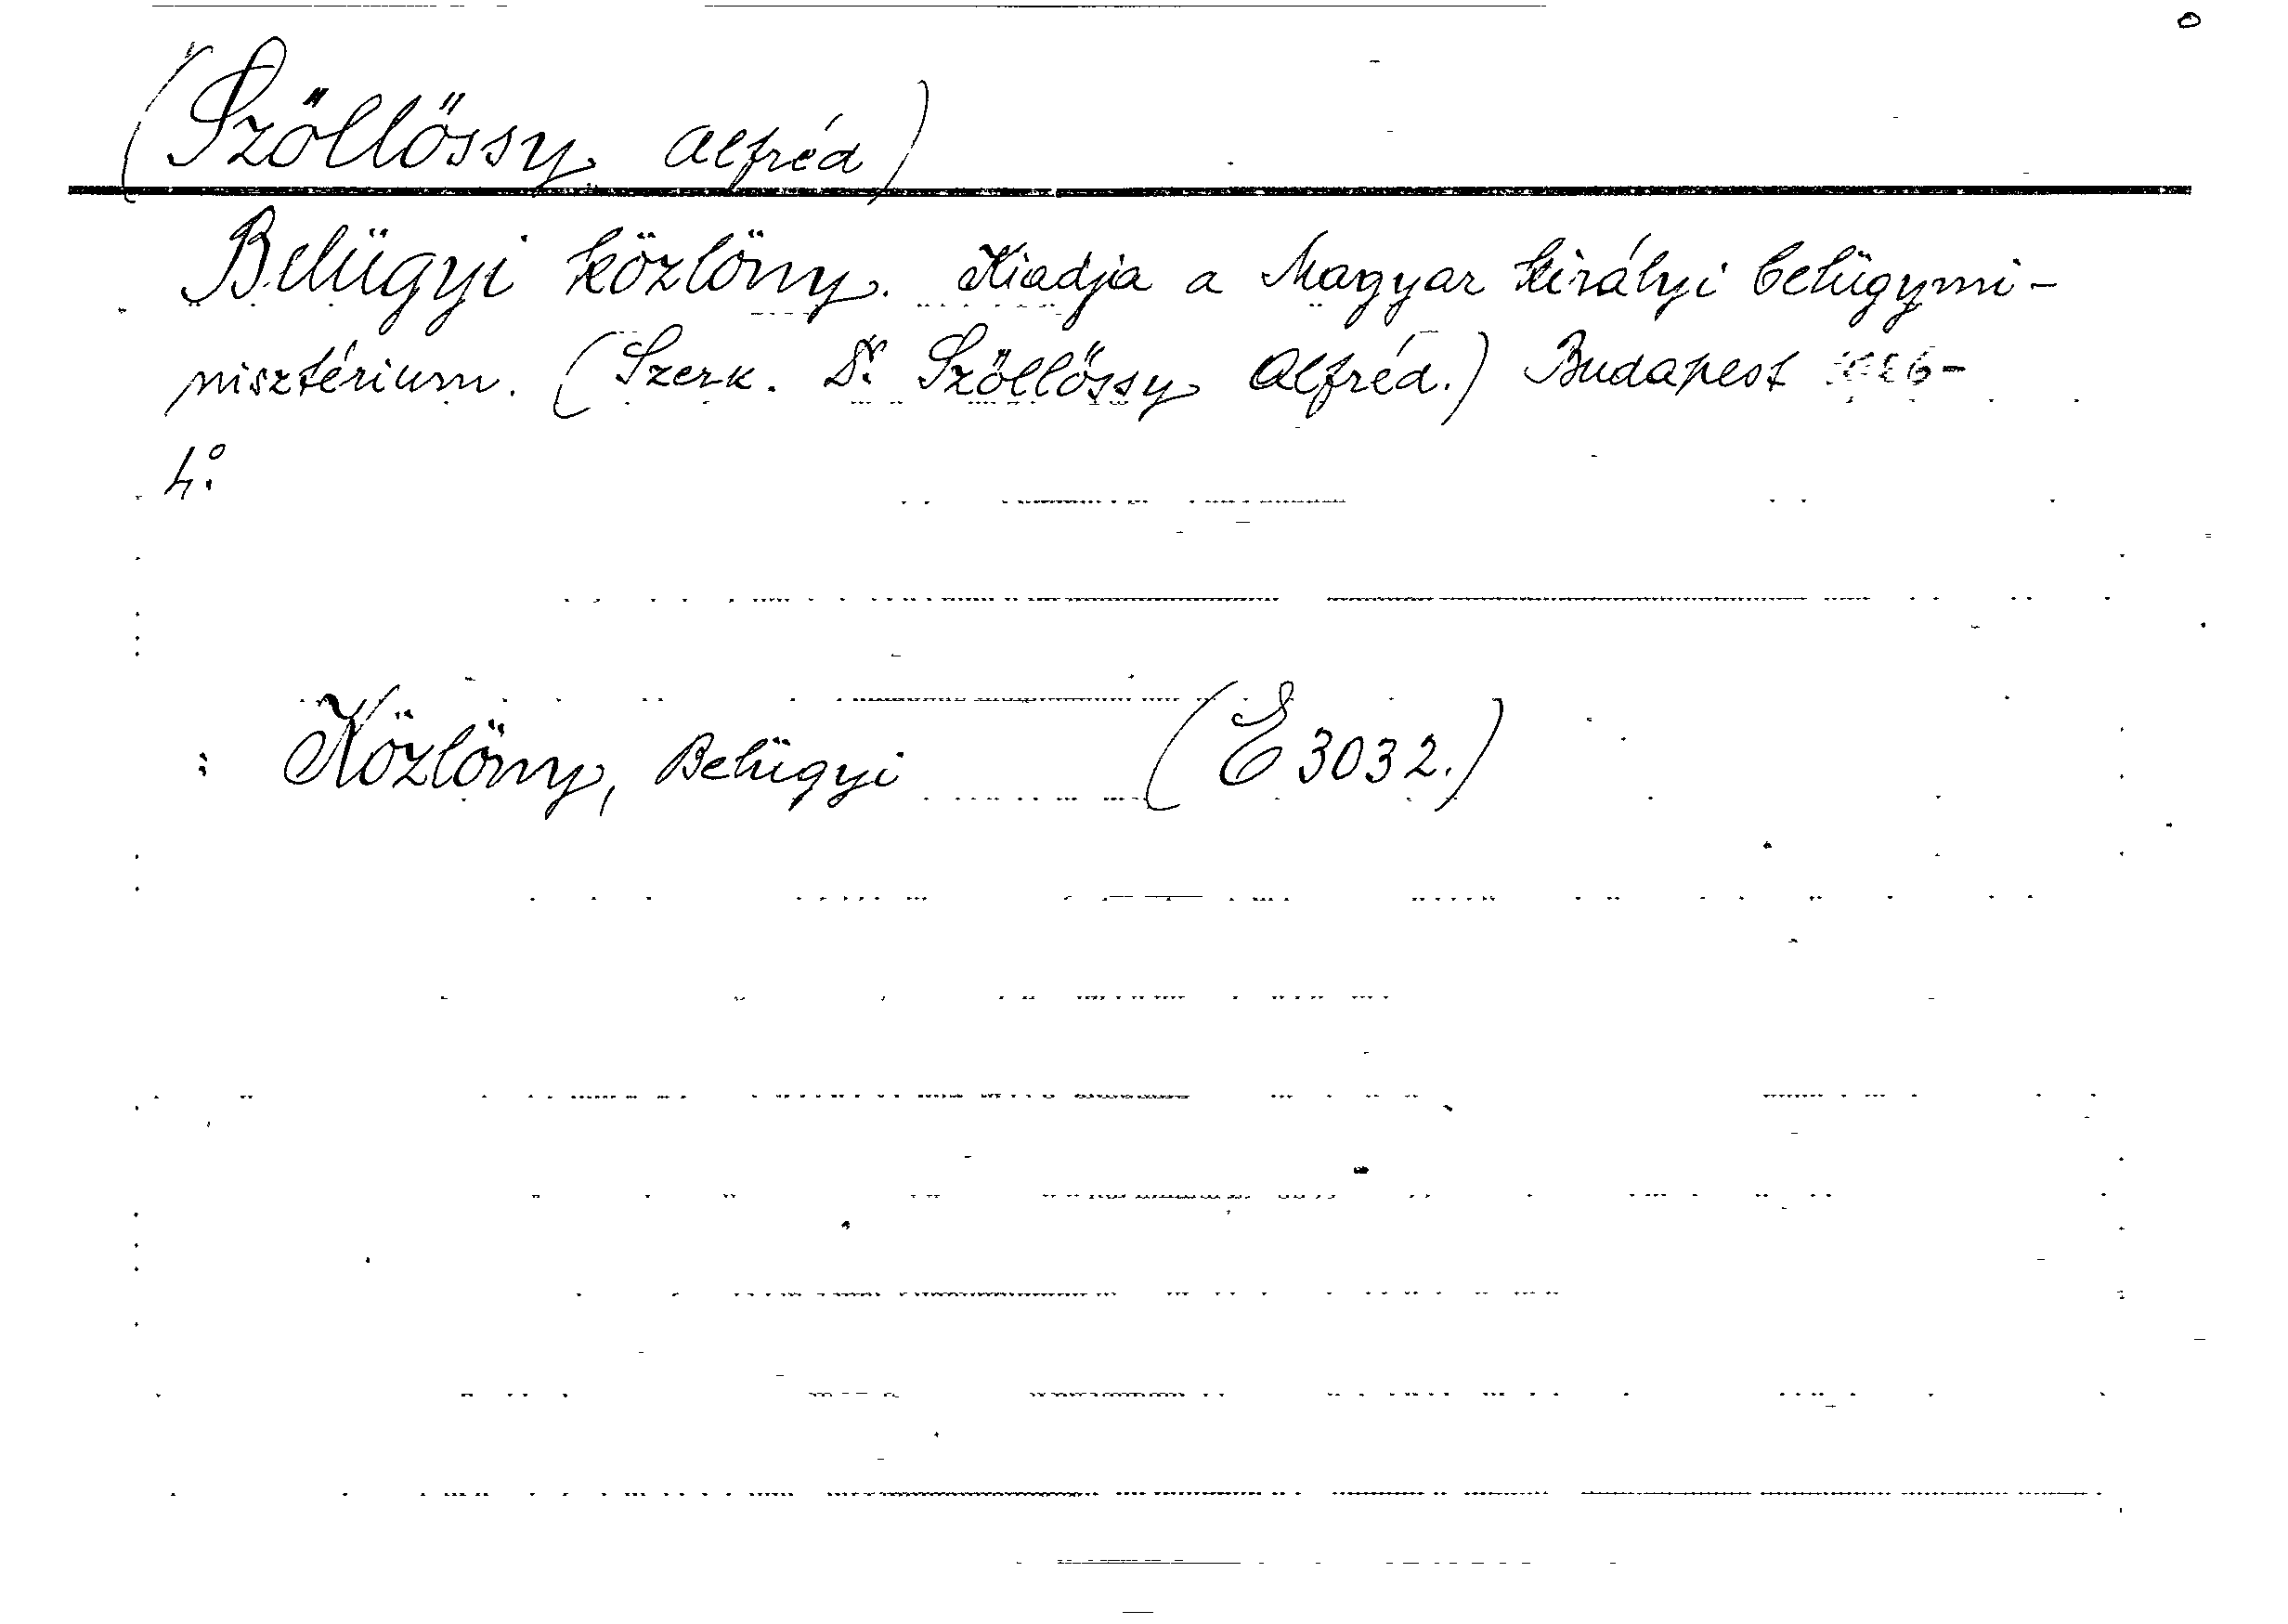 (Szöllőssy Alfréd)
Belügyi közlöny. Kiadja a Magyar királyi belügymi-
nisztérium. (Szerk. Dr. Szöllőssy Alfréd.) Budapest
4°.
Közlöny, Belügyi (E 3032.)